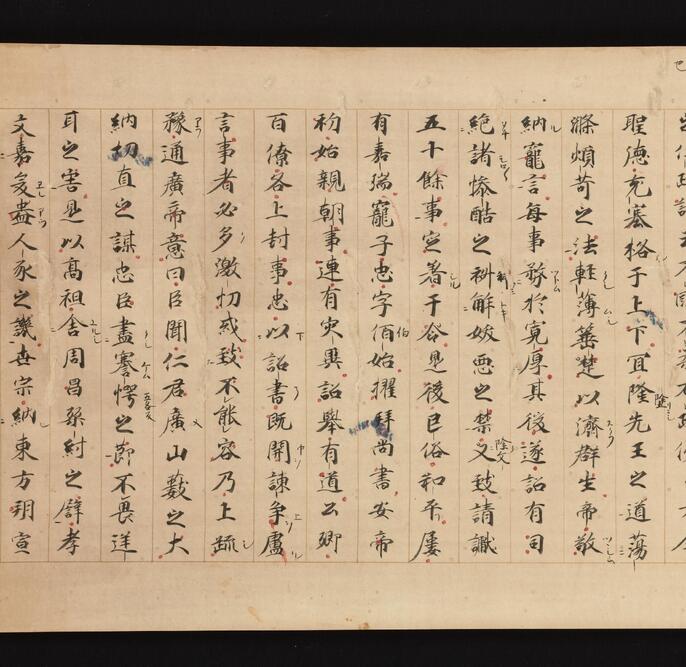 聖德充塞格于上下宜隆先王之道蕩
滌煩苛之法輕薄箠楚以濟群生帝敬
納寵言每事務於寬厚其後遂詔有司
絕諸慘酷之科解妖惡之禁文致請讞
五十餘事定著于令是後民俗和平屢
有嘉瑞寵子忠字佰始擢拜尚書安帝
初始親朝事連有灾異詔舉有道公卿
百僚各上封事忠以詔書既開諫争慮
言事者必多激切或致不能容乃上疏
豫通廣帝意曰臣聞仁君廣山藪之大
納切直之謀忠臣盡謇愕之節不畏逆
耳之害是以高祖舍周昌桀紂之辟孝
文嘉爰盎人豕之譏世宗納東方朔宣